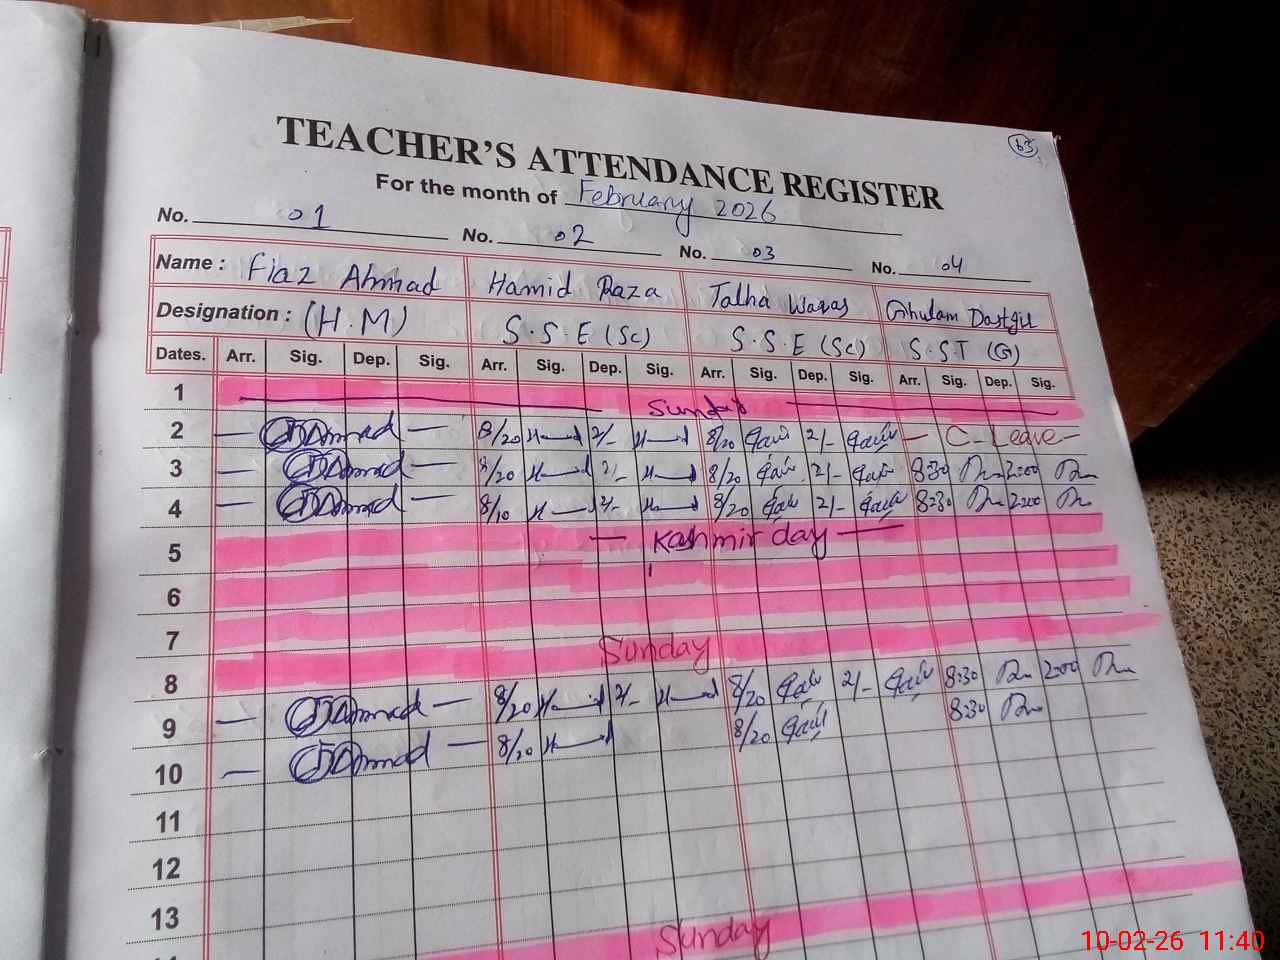 63
TEACHER'S ATTENDANCE REGISTER
For the month of February 2026
No. 01 No. 02 No. 03 No. 04
Name : Fiaz Ahmad Hamid Raza Talha Waqas Ghulam Dastgir
Designation : (H.M) S.S.E (Sc) S.S.E (Sc) S.S.T (G)
Dates. Arr. Sig. Dep. Sig. Arr. Sig. Dep. Sig. Arr. Sig. Dep. Sig. Arr. Sig. Dep. Sig.
1 Sunday
2 — Ahmad — 8/20 2/- 8/20 2/- — C-Leave-
3 — Ahmad — 8/20 2/- 8/20 2/- 8:30 2:00
4 — Ahmad — 8/10 2/- 8/20 2/- 8:30 2:00
5 — Kashmir day —
6
7
8 Sunday
9 — Ahmad — 8/20 2/- 8/20 2/- 8:30 2:00
10 — Ahmad — 8/20 8/20 8:30
11
12
13
Sunday
10-02-26 11:40